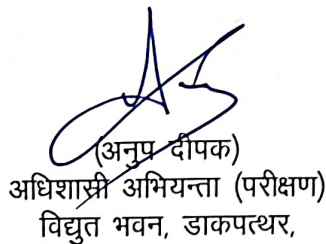 (अनुप दीपक)
अधिशासी अभियन्ता (परीक्षण)
विद्युत भवन, डाकपत्थर,